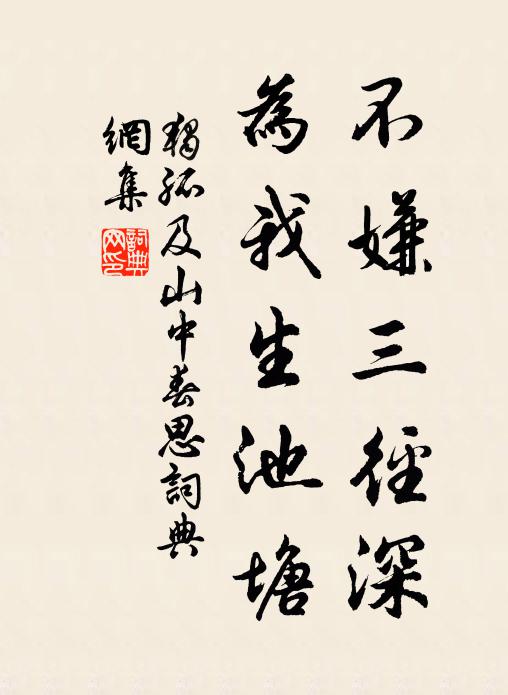 不嫌三徑深
為我生池塘
獨孤及山中春思詞典
網集
詞典網印